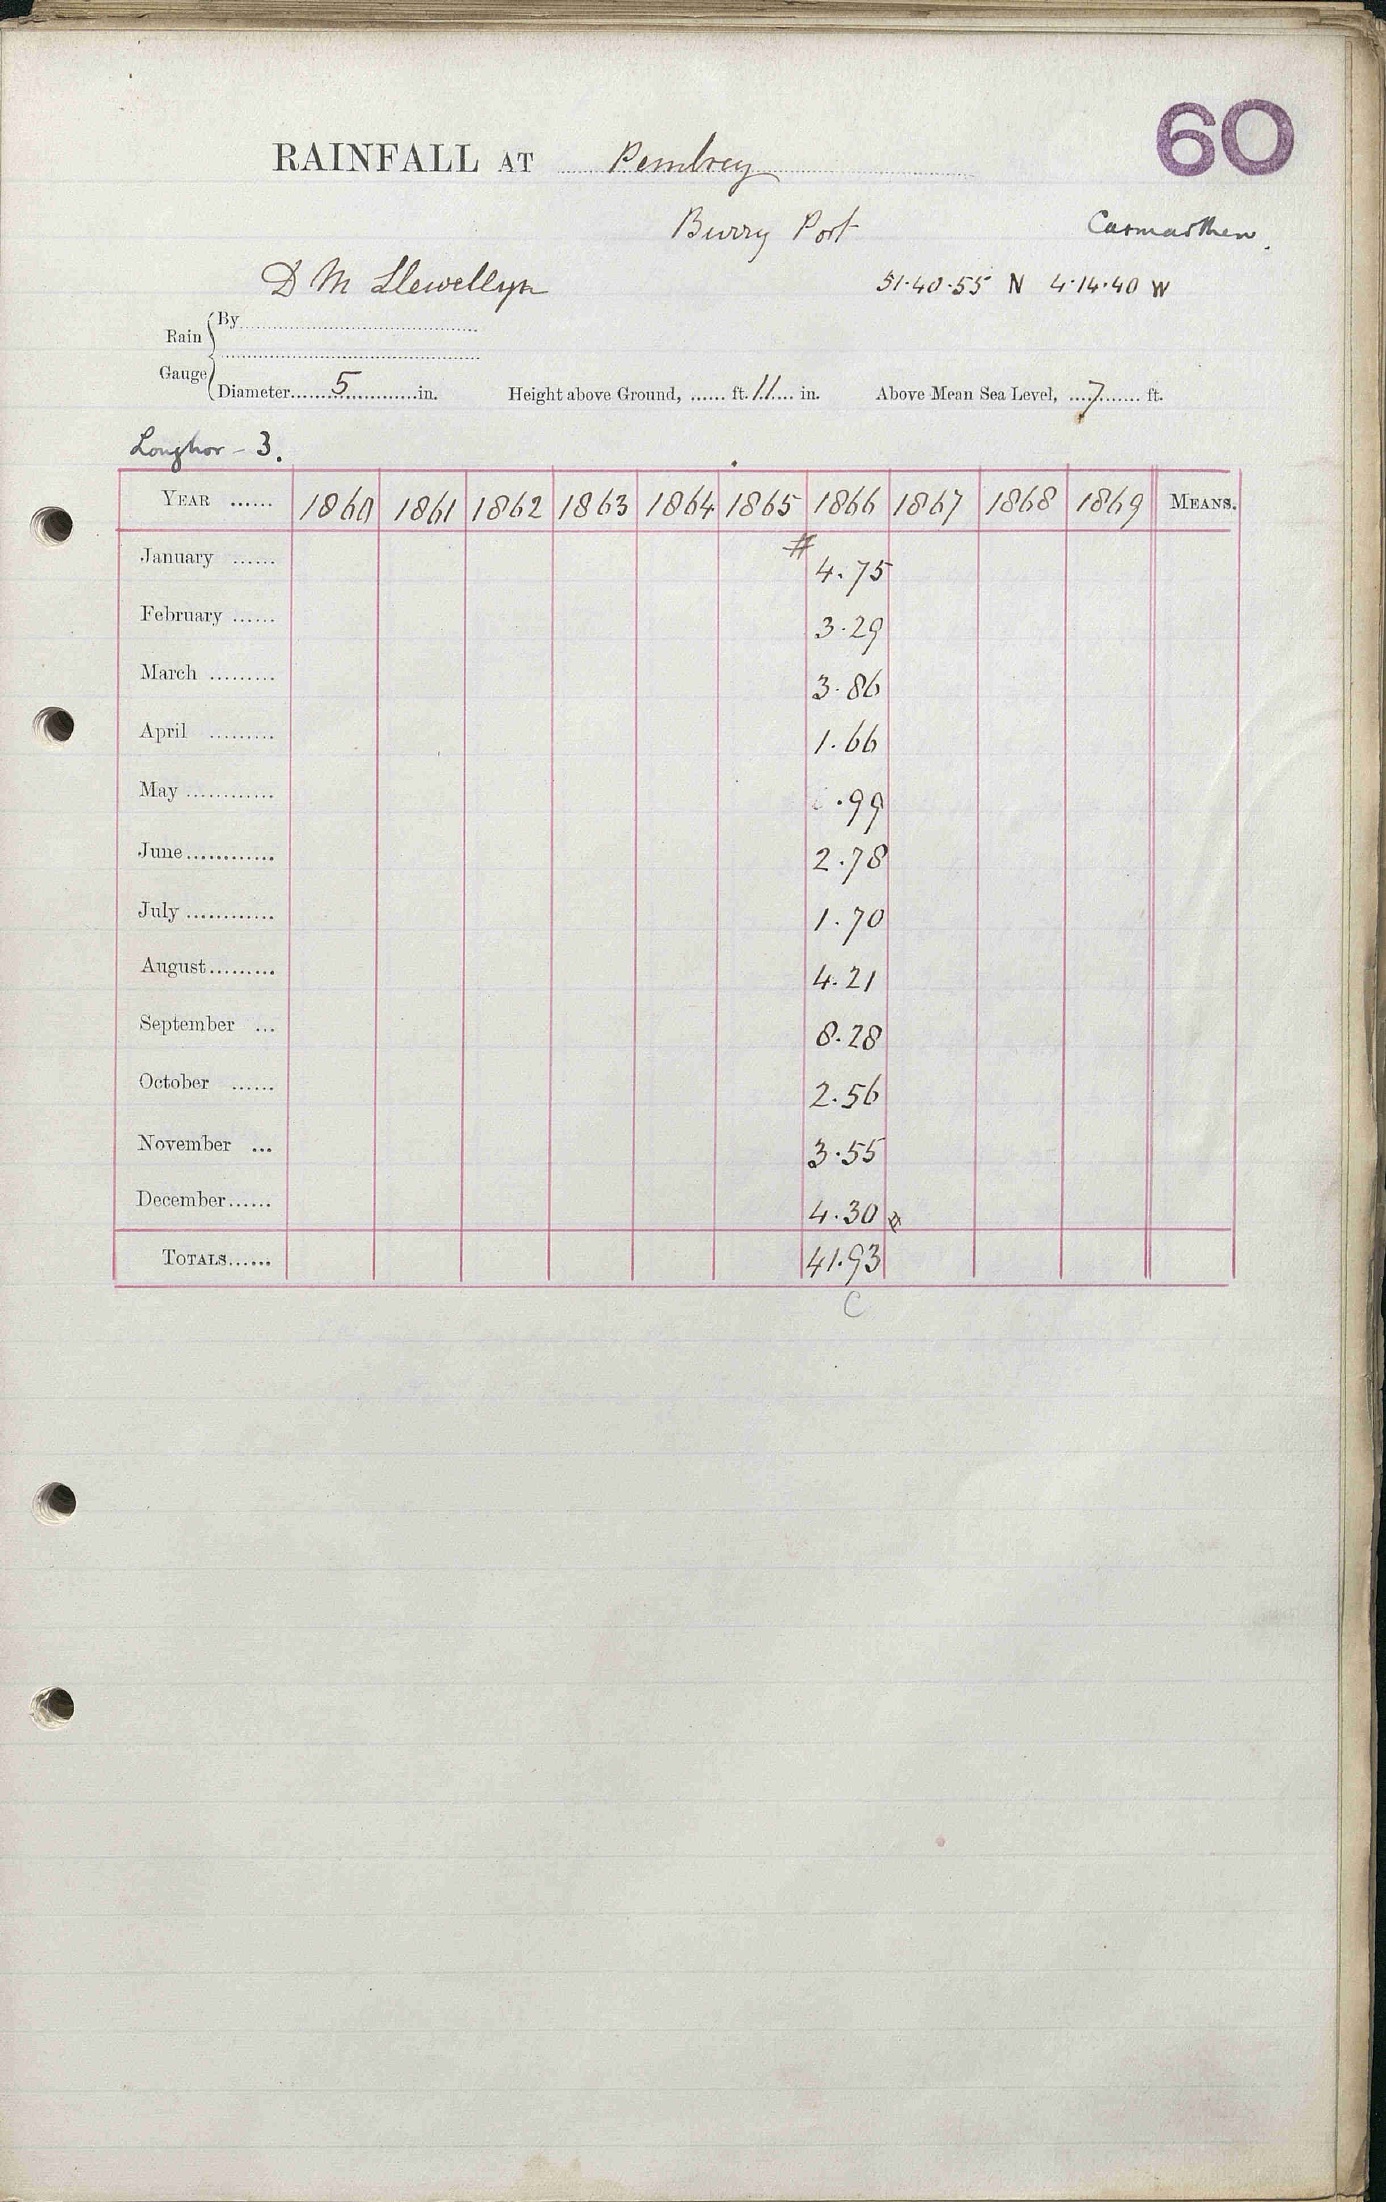 60
RAINFALL AT Pembrey
Burry Port
Carmarthen.
D M Llewellyn
51·40·55 N 4·14·40 W
Rain Gauge { By
Diameter 5 in. Height above Ground, ...... ft. 11 in. Above Mean Sea Level, 7 ft.
Loughor - 3.
YEAR ...... 1860 1861 1862 1863 1864 1865 1866 1867 1868 1869 MEANS.
January ...... # 4.75
February ...... 3.29
March ......... 3.86
April ......... 1.66
May ............ .99
June ............ 2.78
July ............ 1.70
August ......... 4.21
September ... 8.28
October ...... 2.56
November ... 3.55
December ...... 4.30 #
TOTALS ...... 41.93
C